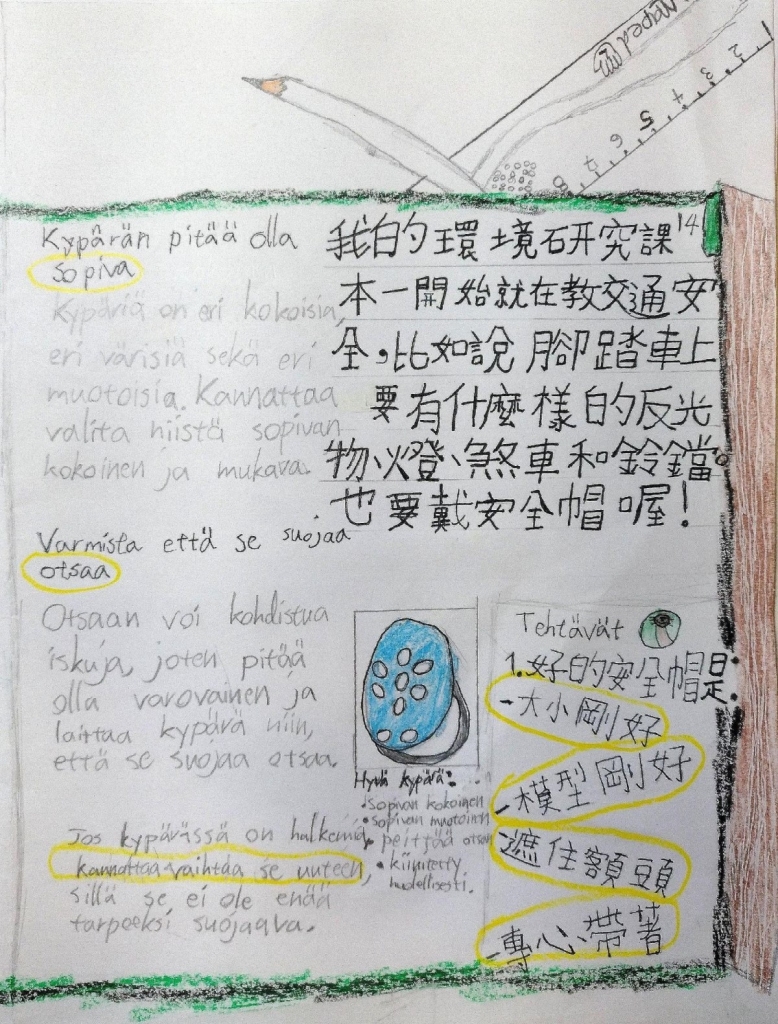 Maped
2 3 4 5 6 7 8
Kypärän pitää olla
sopiva
Kypäriä on eri kokoisia,
eri värisiä sekä eri
muotoisia. Kannattaa
valita niistä sopivan
kokoinen ja mukava.
Varmista että se suojaa
otsaa
Otsaan voi kohdistua
iskuja, joten pitää
olla varovainen ja
laittaa kypärä niin,
että se suojaa otsaa.
Jos kypärässä on halkemia,
kannattaa vaihtaa se uuteen,
sillä se ei ole enää
tarpeeksi suojaava.
我的環境研究課14
本一開始就在教交通安
全,比如說腳踏車上
要有什麼樣的反光
物、燈、煞車和鈴鐺。
也要戴安全帽喔!
Hyvä kypärä:
•sopivan kokoinen
•sopivan muotoinen
peittää otsan
•kiinitetty
huolellisesti.
Tehtävät
1.好的安全帽是:
-大小剛好
-模型剛好
遮住額頭
-專心帶著